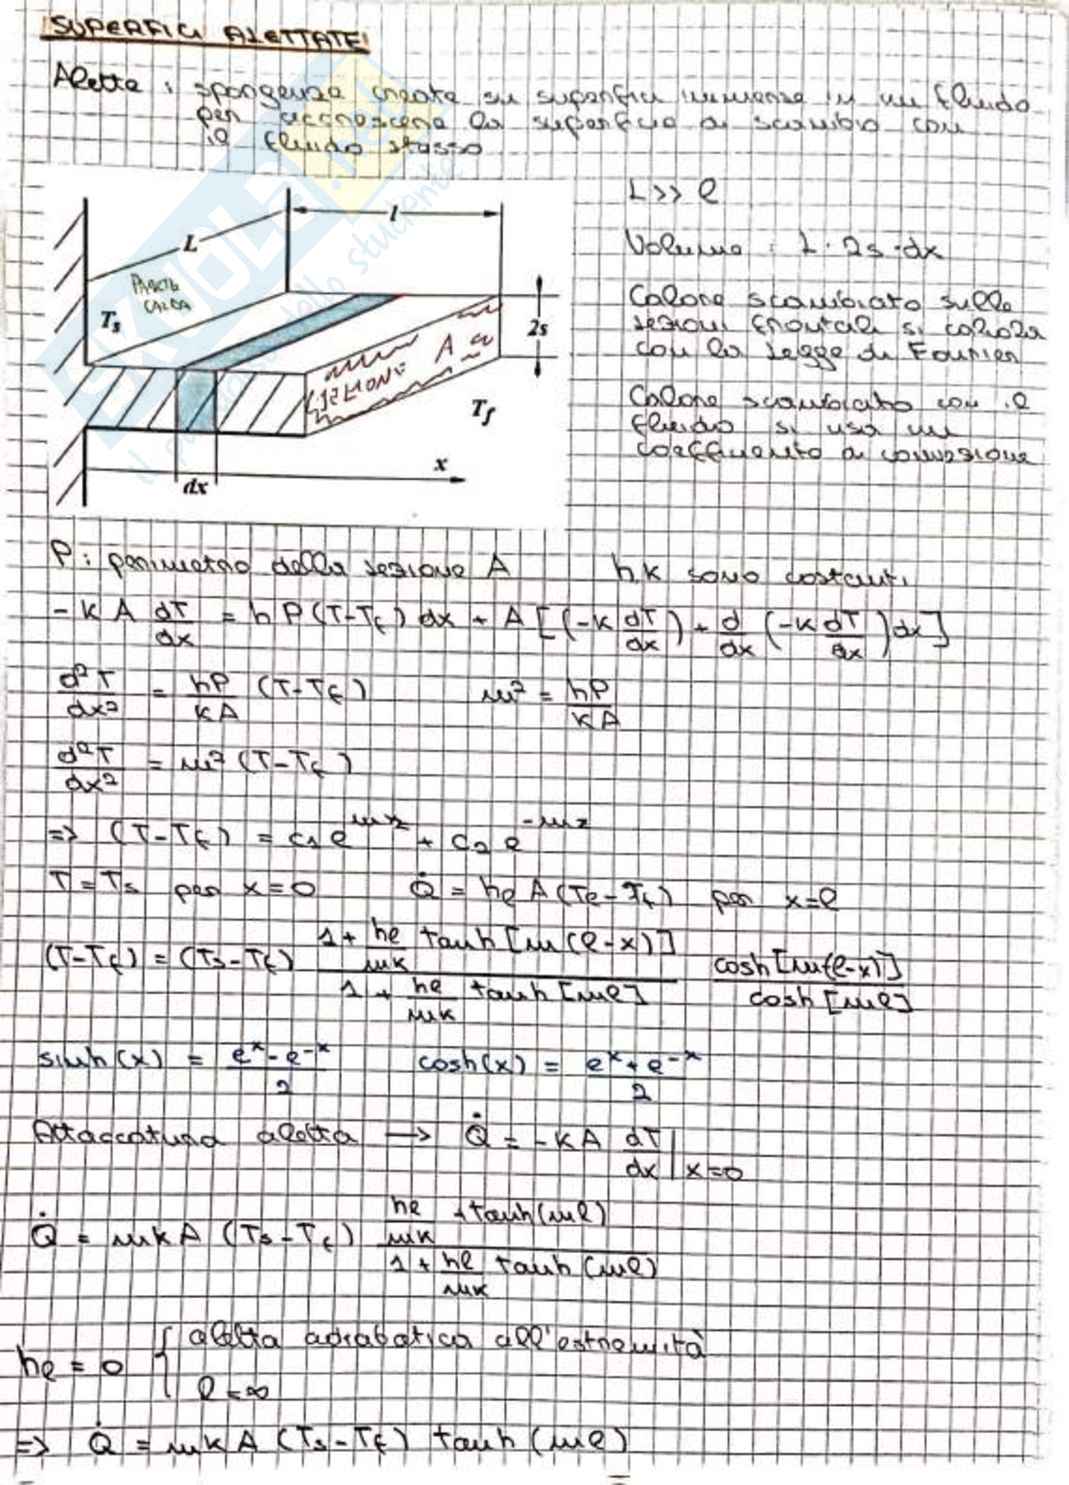 SUPERFICI ALETTATE
Aletta : sporgenza creata su superfici immerse in un fluido
per accrescere la superficie di scambio con
il fluido stesso
L >> l
Volume : L · 2s · dx
Calore scambiato sulle
sezioni frontali si calcola
con la legge di Fourier
Calore scambiato con il
fluido si usa un
coefficiente di convezione
L
l
PARETE
CALDA
Ts
2s
SEZIONE A
Tf
x
dx
P : perimetro della sezione A h, k sono costanti
-k A dT/dx = h P (T-Tf) dx + A [(-k dT/dx) + d/dx (-k dT/dx) dx]
d²T/dx² = hP/kA (T-Tf) m² = hP/kA
d²T/dx² = m² (T-Tf)
=> (T-Tf) = c₁ e^mx + c₂ e^-mx
T = Ts per x=0 Q̇ = hl A (Tl-Tf) per x=l
(T-Tf) = (Ts-Tf) (1 + hl/mk tanh[m(l-x)]) / (1 + hl/mk tanh[ml]) cosh[m(l-x)] / cosh[ml]
sinh(x) = (e^x - e^-x)/2 cosh(x) = (e^x + e^-x)/2
Attaccatura aletta → Q̇ = -kA dT/dx |x=0
Q̇ = mkA (Ts-Tf) (hl/mk + tanh(ml)) / (1 + hl/mk tanh(ml))
hl = 0 { aletta adiabatica all'estremità
l = ∞
=> Q̇ = mkA (Ts-Tf) tanh(ml)